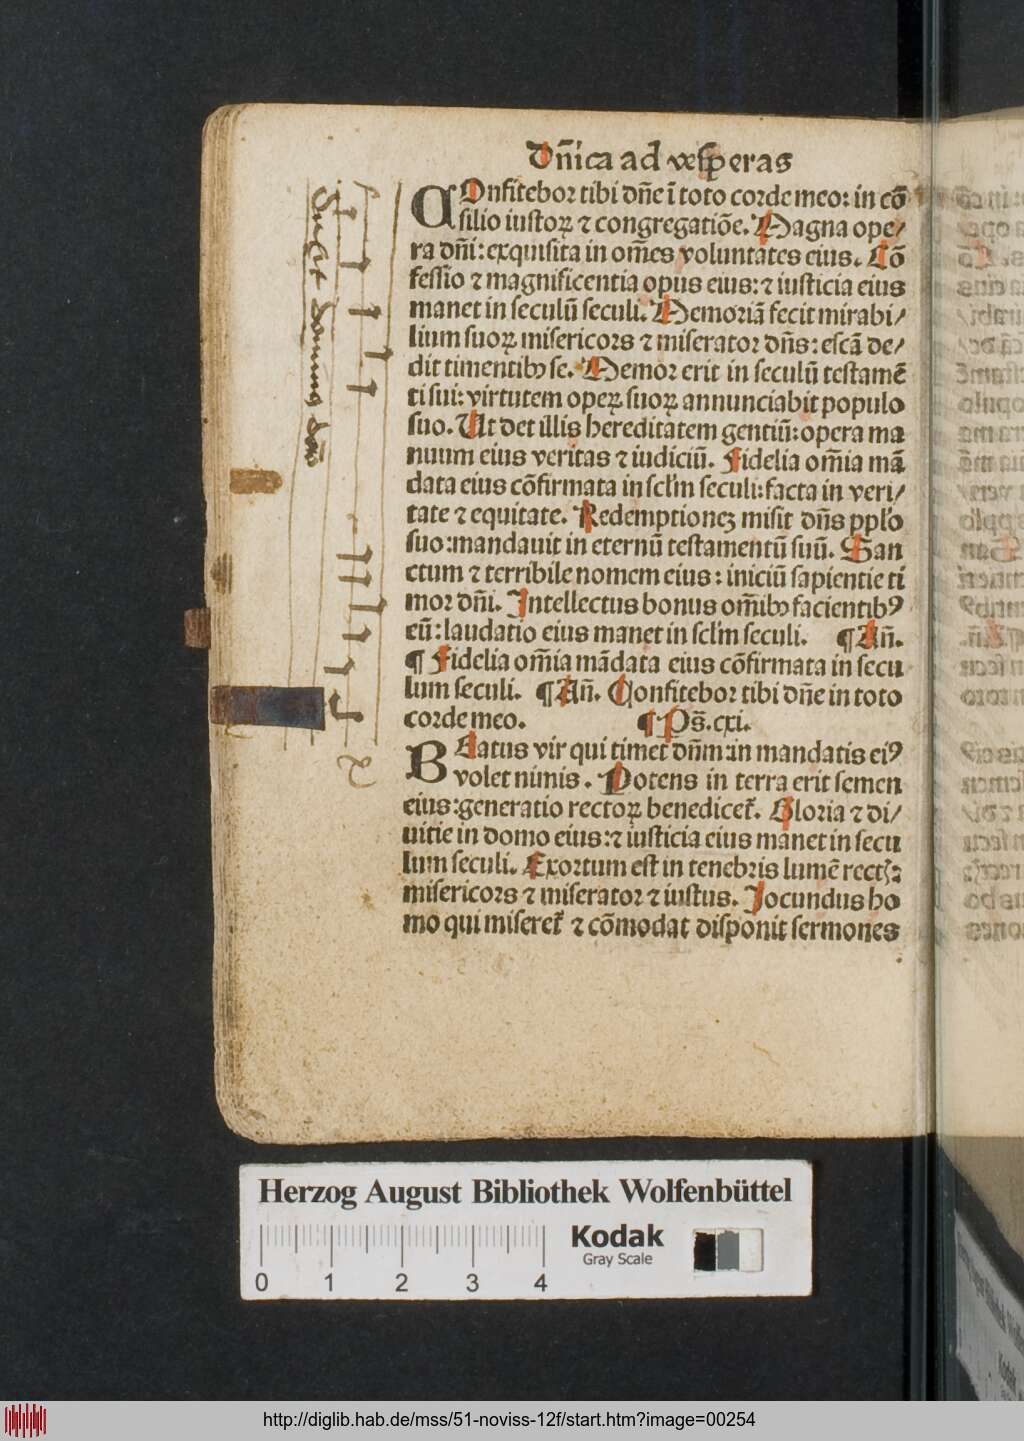 Dn̄ica ad vesperas
COnfitebor tibi dn̄e ī toto corde meo: in cō
silio iustoꝝ ⁊ congregatiōe. Magna ope/
ra dn̄i: exquisita in om̄es voluntates eius. Cō
fessio ⁊ magnificentia opus eius: ⁊ iusticia eius
manet in seculū seculi. Memoriā fecit mirabi/
lium suoꝝ misericors ⁊ miserator dn̄s: escā de/
dit timentibꝰ se. Memor erit in seculū testamē
ti sui: virtutem opeꝝ suoꝝ annunciabit populo
suo. Ut det illis hereditatem gentiū: opera ma
nuum eius veritas ⁊ iudiciū. Fidelia om̄ia mā
data eius cōfirmata in scl̄m seculi: facta in veri/
tate ⁊ equitate. Redemptionēꝫ misit dn̄s ppl̄o
suo: mandauit in eternū testamentū suū. San
ctum ⁊ terribile nomem eius: iniciū sapientie ti
mor dn̄i. Intellectus bonus om̄ibꝰ facientibꝰ
eū: laudatio eius manet in scl̄m seculi. ¶ An̄.
¶ Fidelia om̄ia mādata eius cōfirmata in secu
lum seculi. ¶ An̄. Confitebor tibi dn̄e in toto
corde meo. ¶ Ps̄. cxi.
BEatus vir qui timet dn̄m: in mandatis eiꝰ
volet nimis. Potens in terra erit semen
eius: generatio rectoꝝ benedicet̄. Gloria ⁊ di/
uitie in domo eius: ⁊ iusticia eius manet in secu
lum seculi. Exortum est in tenebris lumē rectꝭ:
misericors ⁊ miserator ⁊ iustus. Jocundus ho
mo qui miseret̄ ⁊ cōmodat disponit sermones
Dixit dominus dn̄o
Herzog August Bibliothek Wolfenbüttel
0 1 2 3 4
Kodak
Gray Scale
http://diglib.hab.de/mss/51-noviss-12f/start.htm?image=00254